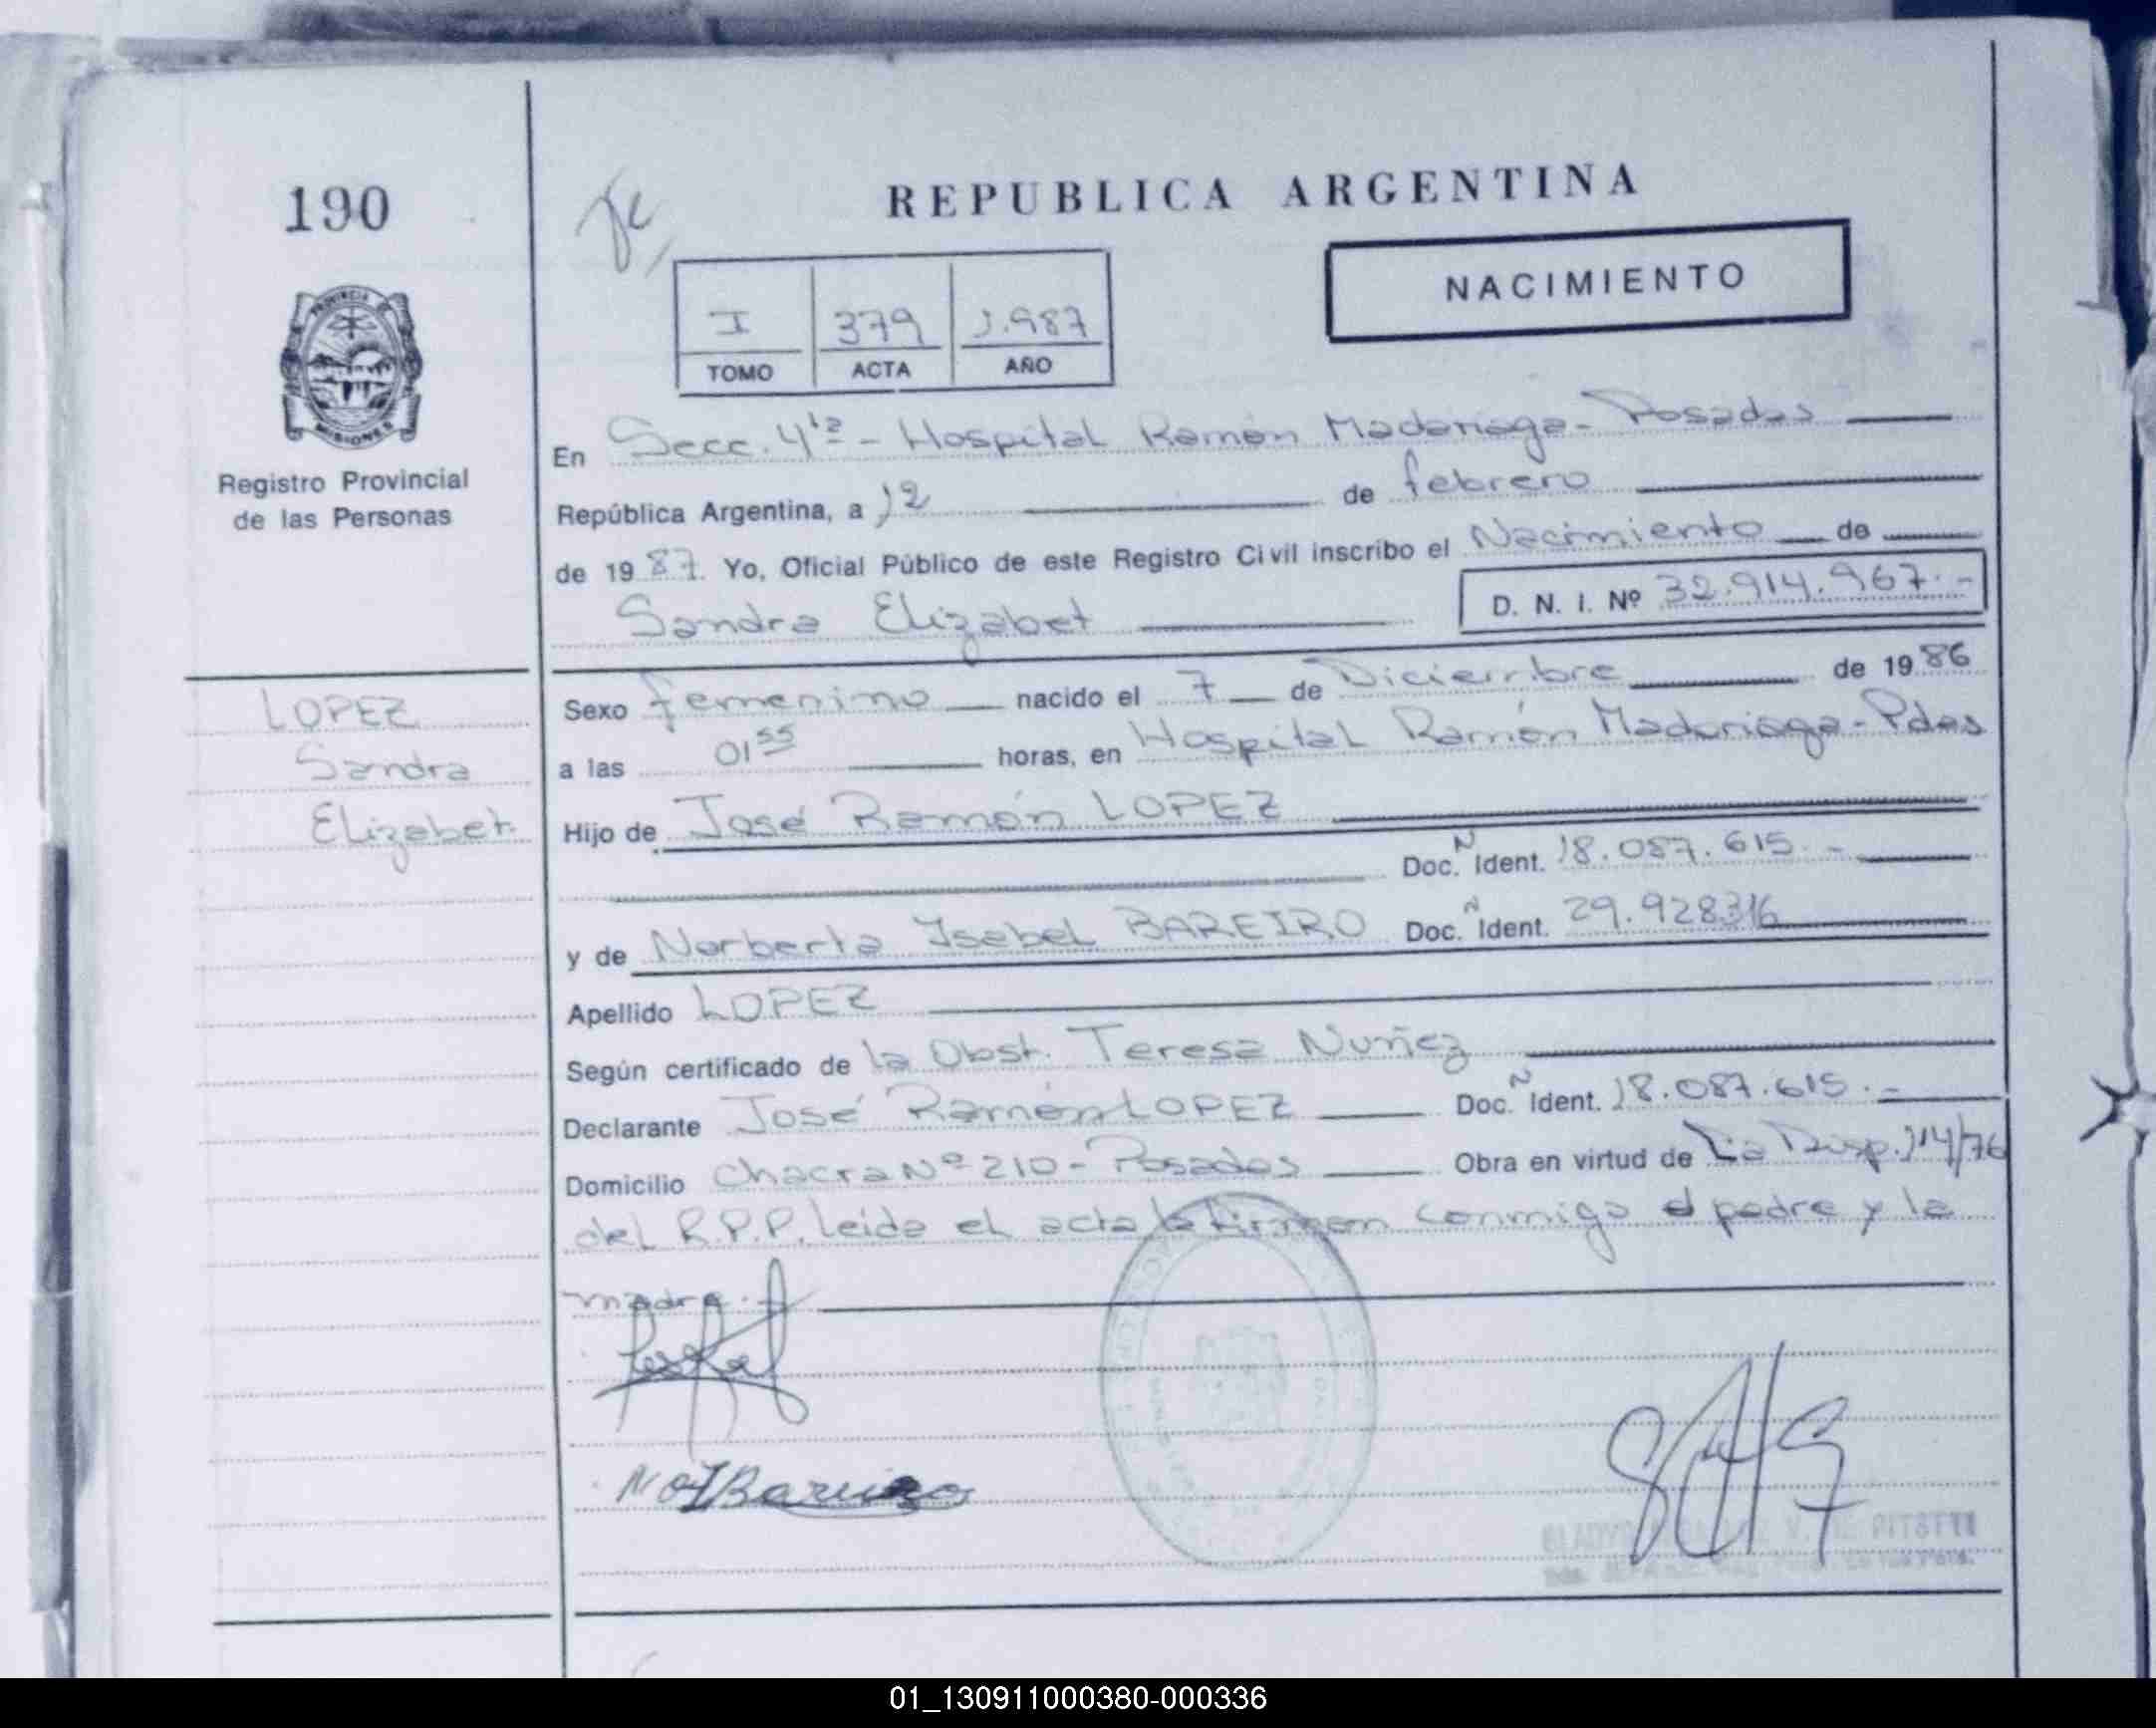 190
REPUBLICA ARGENTINA
NACIMIENTO
I 379 1.987
TOMO ACTA AÑO
PROVINCIA DE
MISIONES
Registro Provincial
de las Personas
En Secc. 4ta - Hospital Ramón Madariaga - Posadas
República Argentina, a 12 de febrero
de 1987. Yo, Oficial Público de este Registro Civil inscribo el Nacimiento de
Sandra Elizabet D. N. I. Nº 32.914.967.-
LOPEZ
Sandra
Elizabet
Sexo femenino nacido el 7 de Diciembre de 1986
a las 01 55 horas, en Hospital Ramón Madariaga - Pdas
Hijo de José Ramón LOPEZ
Doc. N Ident. 18.087.615.-
y de Norberta Isabel BAREIRO Doc. N Ident. 29.928316
Apellido LOPEZ
Según certificado de la Obst. Teresa Nuñez
Declarante José Ramón LOPEZ Doc. N Ident. 18.087.615.-
Domicilio Chacra Nº 210 - Posadas Obra en virtud de La Disp. 114/76
del R.P.P. leida el acta la firman conmigo el padre y la
madre.-
N I Bareiro
PITSTTI
01_130911000380-000336